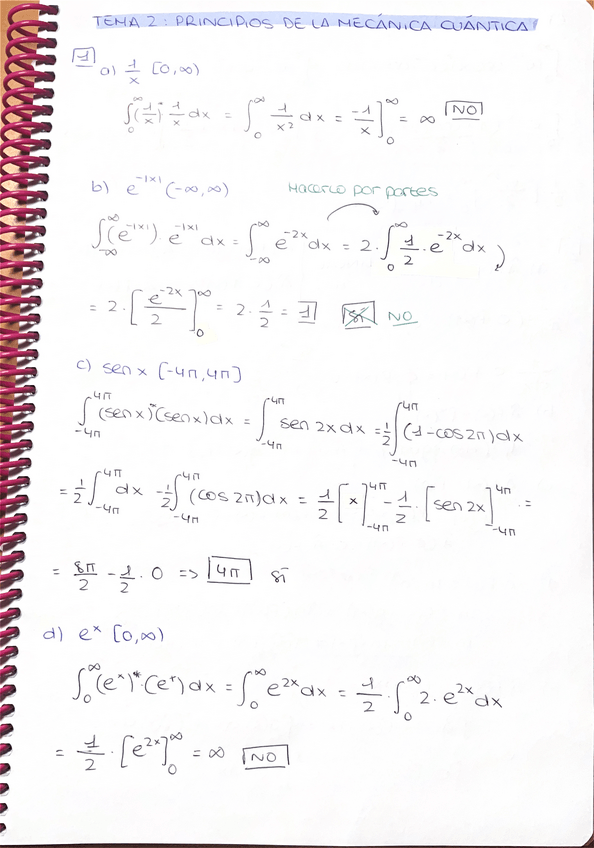 TEMA 2: PRINCIPIOS DE LA MECÁNICA CUÁNTICA
1
a) 1/x [0,∞)
∫₀^∞ (1/x)* 1/x dx = ∫₀^∞ 1/x² dx = -1/x]₀^∞ = ∞ NO
b) e^-|x| (-∞,∞) Hacerlo por partes
∫_-∞^∞ (e^-|x|)· e^-|x| dx = ∫_-∞^∞ e^-2x dx = 2·∫₀^∞ 1/2 · e^-2x dx
= 2·[e^-2x/2]₀^∞ = 2·1/2 = 1 SÍ NO
c) sen x [-4π,4π]
∫_-4π^4π (sen x)*(sen x)dx = ∫_-4π^4π sen 2x dx = 1/2 ∫_-4π^4π (1-cos2π)dx
= 1/2 ∫_-4π^4π dx - 1/2 ∫_-4π^4π (cos2π)dx = 1/2 [x]_-4π^4π - 1/2 · [sen 2x]_-4π^4π =
= 8π/2 - 1/2 · 0 => 4π sí
d) e^x [0,∞)
∫₀^∞ (e^x)*·(e^x) dx = ∫₀^∞ e^2x dx = 1/2 · ∫₀^∞ 2·e^2x dx
= 1/2 · [e^2x]₀^∞ = ∞ NO